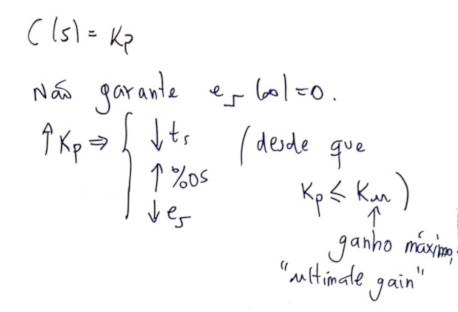 C(s) = Kp
Não garante e_s(∞)=0.
↑Kp ⇒ { ↓ts (desde que
↑%OS Kp ≤ Ku)
↓es
ganho máximo,
"ultimate gain"